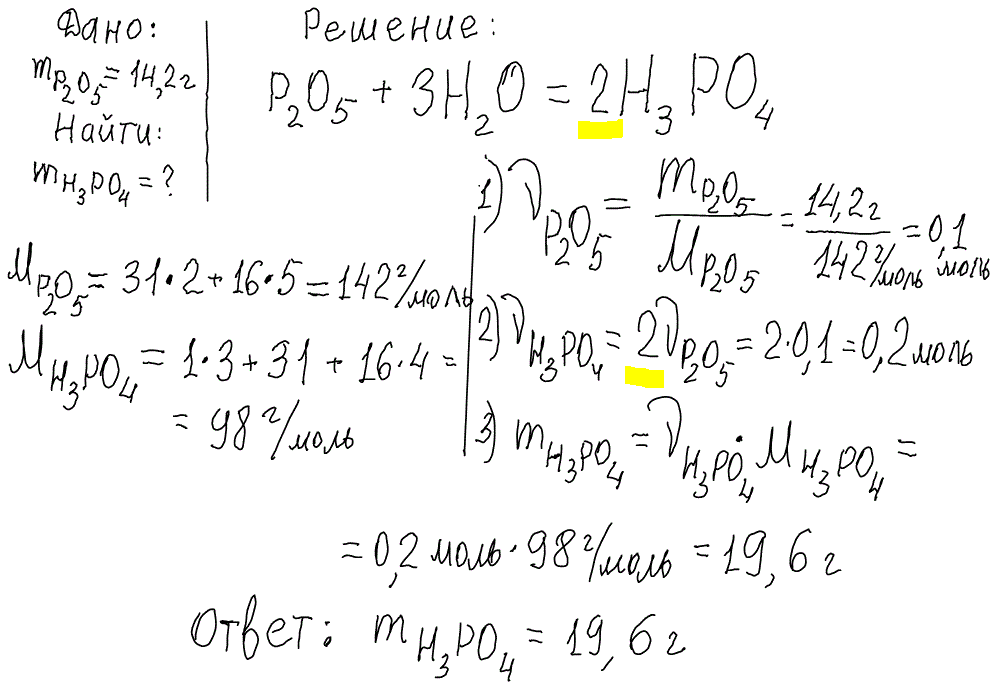 Дано:
mP₂O₅ = 14,2г
Найти:
mH₃PO₄ = ?
Решение:
P₂O₅ + 3H₂O = 2H₃PO₄
MP₂O₅ = 31·2 + 16·5 = 142 г/моль
MH₃PO₄ = 1·3 + 31 + 16·4 =
= 98 г/моль
1) νP₂O₅ = mP₂O₅/MP₂O₅ = 14,2г/142 г/моль = 0,1 моль
2) νH₃PO₄ = 2νP₂O₅ = 2·0,1 = 0,2 моль
3) mH₃PO₄ = νH₃PO₄ · MH₃PO₄ =
= 0,2 моль · 98 г/моль = 19,6 г
Ответ: mH₃PO₄ = 19,6 г